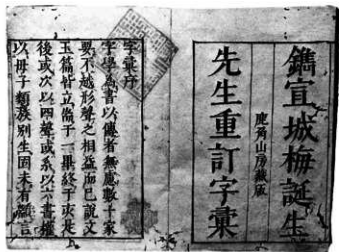 鐫宣城梅誕生
先生重訂字彙
鹿角山房藏板
字彙序
字學爲書以傳者無慮數十家
要不越形聲之相益而已說文
玉篇皆立耑于一畢終于亥是
後或次以四聲或系以六書攝
以母子類族別生固未有繇言